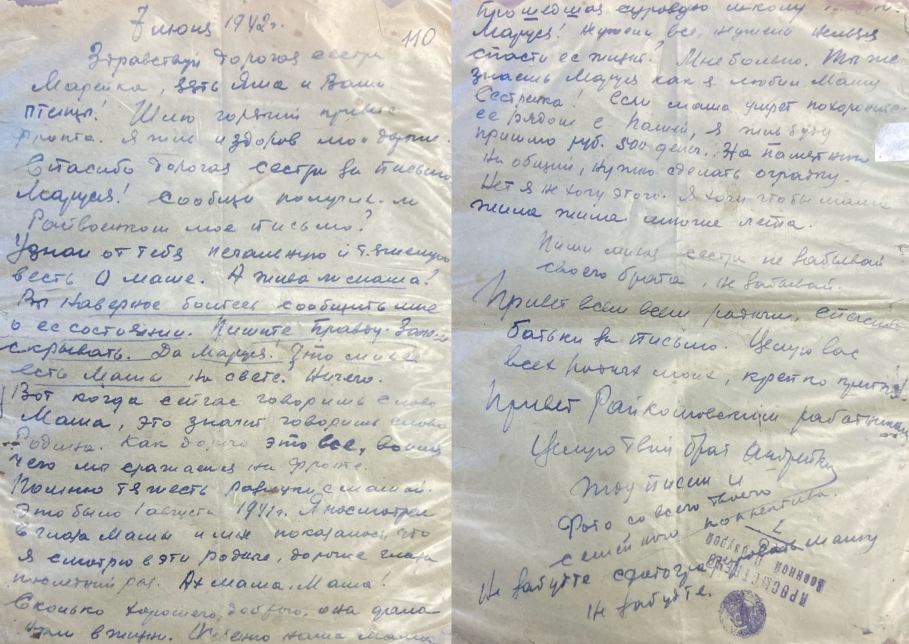 7 июня 1942 г.
110
Здравствуй дорогая сестра
Марейка, зять Яша и Ваши
птенцы! Шлю горячий привет
фронта. Я жив и здоров
Спасибо дорогая сестра за письмо
Маруся! Сообщи получил ли
Райвоенком мое письмо?
Узнал от тебя печальную и тяжелую
весть о маме. А жива ж мама?
Вы наверное боитесь сообщить мне
о ее состоянии. Пишите правду. Зачем
скрывать. Да Маруся! Что может
есть Мамы на свете. Ничего.
Вот когда сейчас говоришь слово
Мама, это значит говоришь слово
Родина. Как дорого это все, во имя
чего мы сражаемся на фронте.
Помню тяжесть разлуки с мамой.
Это было 1 августа 1941 г. Я посмотрел
в глаза Мамы и мне показалось, что
я смотрю в эти родные, дорогие глаза
последний раз. Ах мама. Мама!
Сколько хорошего, доброго она дала
нам в жизни. наша мама
Прошедшая суровую школу
Маруся! Нужели все, нужели нельзя
спасти ее жизнь? Мне больно. Ты же
знаешь Маруся как я люблю Маму
Сестрежка! Если мама умрет похороните
ее рядом с Пашей, я жив буду
пришлю руб. 500 денег. На памятник
на общий, нужно сделать оградку.
Нет я не хочу этого. Я хочу чтобы мама
жила жила многие лета.
Пиши милая сестра не забывай
своего брата, не забывай.
Привет всем всем родным, спасибо
батьки за письмо. Целую вас
всех родных моих, крепко
Привет Райкомовским работникам
Целую твой брат Андрейка
Жду писем и
фото со всего твоего
семейного коллектива.
Не забудьте сфотографировать маму
не забудьте.
ПРОСМОТРЕНО
ВОЕННОЙ